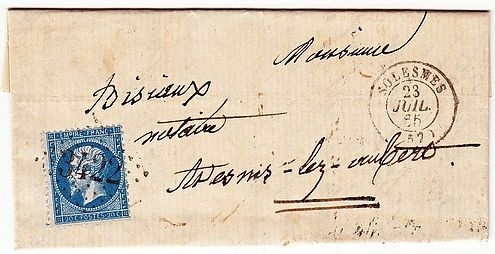 Monsieur
Bisiaux
notaire
Avesnes-lez-aubert
SOLESMES
23
JUIL.
65
(57)
EMPIRE FRANC
3422
20 C POSTES 20 C